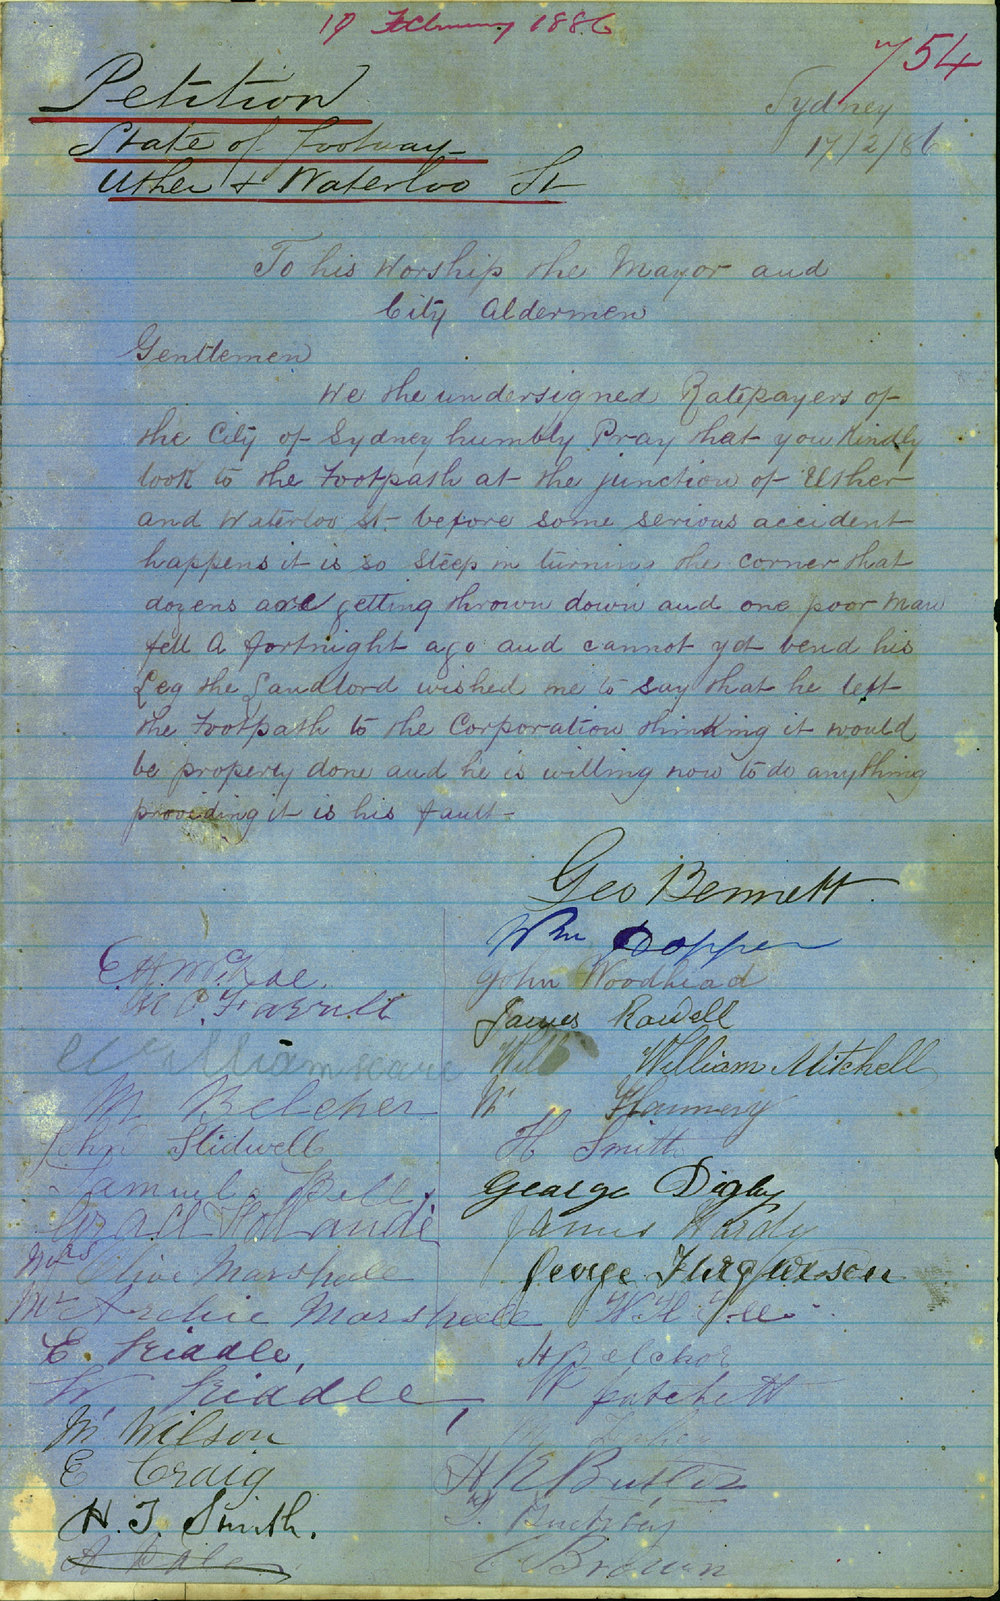 19 February 1886
754
Petition
State of Footway
Uther & Waterloo St
Sydney
17/2/86
To his Worship the Mayor and
City Aldermen
Gentlemen
We the undersigned Ratepayers of
the City of Sydney humbly Pray that you Kindly
look to the Footpath at the junction of Uther
and Waterloo St- before some serious accident
happens it is so steep in turning the corner that
dozens are getting thrown down and one poor man
fell a fortnight ago and cannot yet bend his
Leg the Landlord wished me to say that he left
the Footpath to the Corporation thinking it would
be properly done and he is willing now to do anything
providing it is his fault-
Geo Bennett
Wm Dopper
John Woodhead
James Rowell
Will William Mitchell
W Flannery
H Smith
George Digby
James Hardy
George Furguson
W H
H Belchor
W Patchett
M
H R Butler
T.
C Brown
E.
M
William
M Belcher
John Slidwell
Samuel Bell
Hollande
Mrs Olive Marshall
Mr Archie Marshall
E. Kiddle,
W. Kiddle,
W Wilson
E Craig
H. J. Smith.